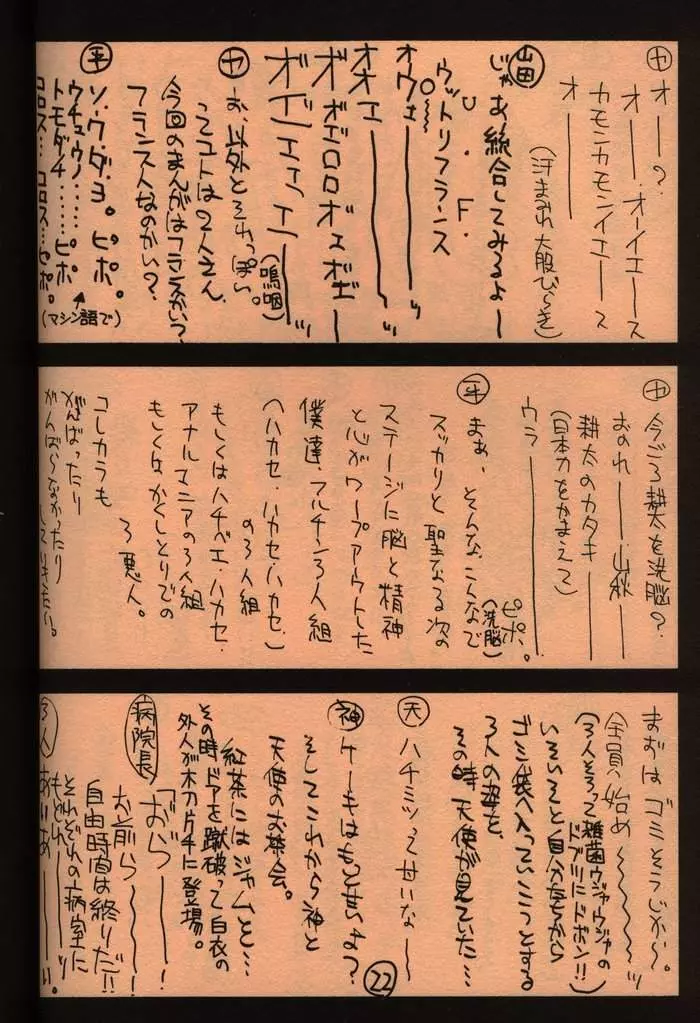 ヤ
オー?
オー オーイエース
カモンカモンイエース
オー
(汗まみれ大股びらき)
山田
じゃあ統合してみるよー
U.F.
O
ウットリフランス
オウェー
オオェー
オボエロロオボェボゼー
オゲェェェー
(嗚咽)
ヤ
お、以外とそれっぽい。
ってコトは2人さん、
今回のまんがはフランスかい?
フランス人なのかい?
平
ソ・ウ・ダ・ヨ。ピポ。
ウチュウノ……ピポ
トモダチ
コロス…コロス…ピポ。
(マシン語で)
ヤ
今ごろ耕太を洗脳?
おのれー山秋
耕太のカタキ
(日本刀をかまえて)
ウラー
ピポ。
(洗脳)
平
まぁ、そんなこんなで
スッカリと聖なる次の
ステージに脳と精神
と心がワープアウトした
僕達、フルチン3人組
(ハカセ・ハカセ・ハカセ)
の3人組
もしくはハチベエ・ハカセ・
アナルマニアの3人組
もしくはかくしとりでの
3悪人。
コレカラも
がんばったり
がんばらなかったり
していきたい。
まずはゴミそうじから。
全員、始め〜
(3人そろって雑菌ウジャウジャの
ドブ川にドボン!!)
いそいそと自分たちから
ゴミ袋へ入っていこうとする
3人の姿を、
その時天使が見ていた…
天
ハチミツって甘いな〜
神
ケーキはもっと甘いよ?
そしてこれから神と
天使のお茶会。
紅茶にはジャムと…
その時ドアを蹴破って白衣の
外人が木刀片手に登場。
病院長
「おらー!
お前らー!
自由時間は終りだ!!
それぞれの病室に
もどれーッ
3人
あいあーい。
22